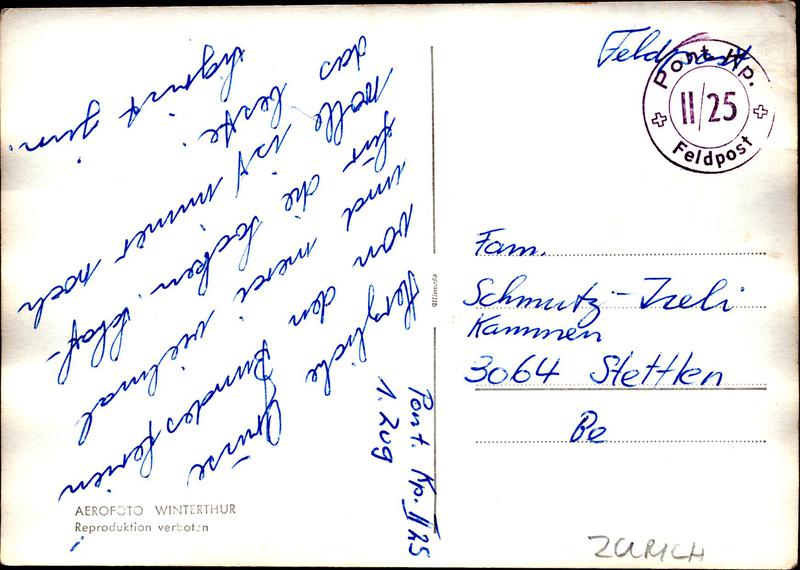 Herzliche Grüsse
von den Bundesferien
und merci vielmal
für die Socken. Schaf-
wolle ist immer noch
das beste.
Pont. Kp. II 25
1. Zug
AEROFOTO WINTERTHUR
Reproduktion verboten
Feldpost
Pont Kp.
II/25
Feldpost
Fam.
Schmutz-Iseli
Kammen
3064 Stettlen
Be
ZÜRICH